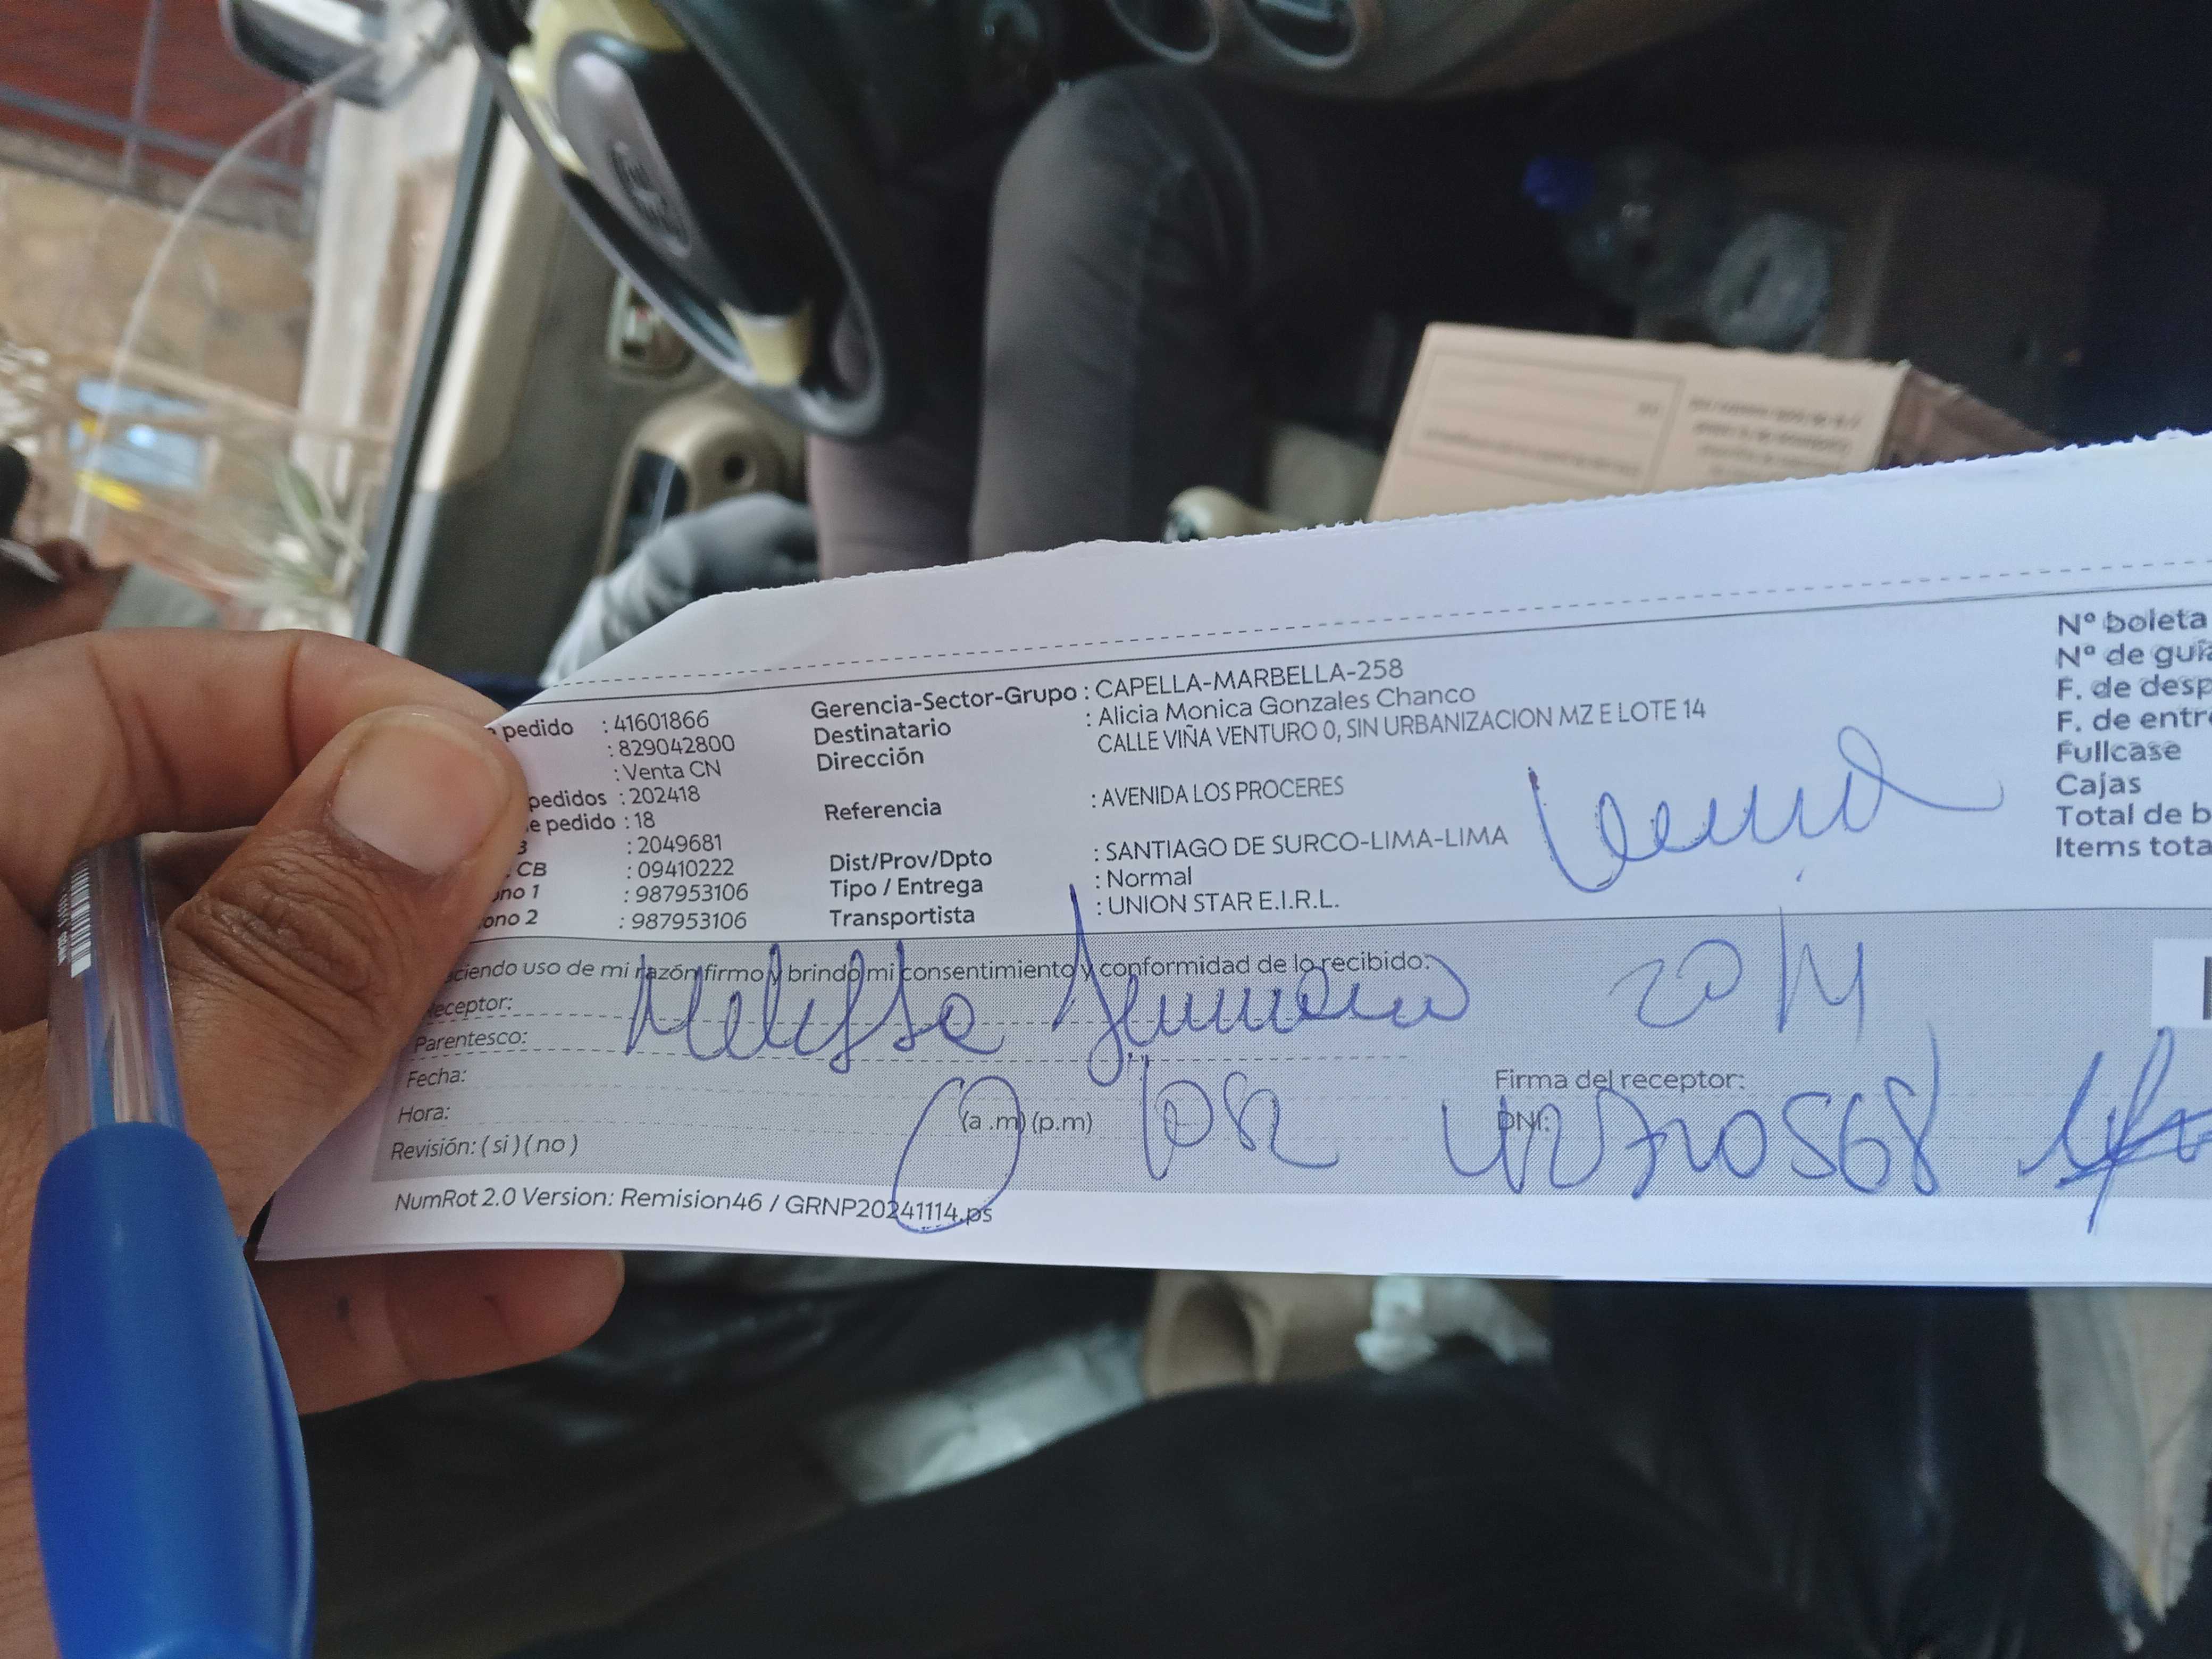 pedido : 41601866
: 829042800
: Venta CN
pedidos : 202418
e pedido : 18
: 2049681
CB : 09410222
ono 1 : 987953106
ono 2 : 987953106
Gerencia-Sector-Grupo : CAPELLA-MARBELLA-258
Destinatario : Alicia Monica Gonzales Chanco
Dirección CALLE VIÑA VENTURO 0, SIN URBANIZACION MZ E LOTE 14
Referencia : AVENIDA LOS PROCERES
Dist/Prov/Dpto : SANTIAGO DE SURCO-LIMA-LIMA
Tipo / Entrega : Normal
Transportista : UNION STAR E.I.R.L.
Nº boleta
Nº de guía
F. de desp
F. de entre
Fullcase
Cajas
Total de b
Items tota
ciendo uso de mi razón firmo y brindo mi consentimiento y conformidad de lo recibido:
eceptor: Melissa
Parentesco:
Fecha:
Hora: (a .m) (p.m)
Revisión: ( si ) ( no )
Firma del receptor:
DNI:
NumRot 2.0 Version: Remision46 / GRNP20241114.ps